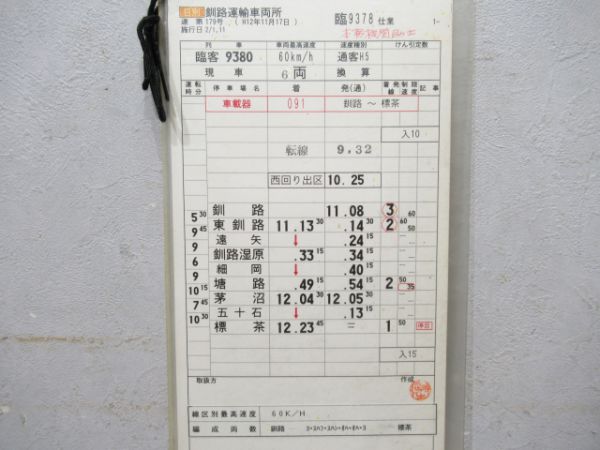 日別 釧路運輸車両所 臨 9378 仕業 1-
運 第 179号 (H12年11月17日)
施行日 2/1,11
列車 車両最高速度 速度種別 けん引定数
臨客 9380 60km/h 通客H5
現車 6両 換算
運転時分 停車場名 着 発(通) 着発線 制限速度 記事
車載器 091 釧路 ~ 標茶
入10
転線 9.32
西回り出区 10.25
釧路 11.08 3 60
5 30 東釧路 11.13 30 .14 30 2 60 50
9 45 遠矢 ↓ .24 15
9 釧路湿原 .33 15 .34 15
6 細岡 ↓ .40 15
9 塘路 .49 15 .54 15 2 50 35
10 15 茅沼 12.04 30 12.05 30
7 45 五十石 ↓ .13 15
10 30 標茶 12.23 45 = 1 50 停目
入15
取扱方 作成
線区別最高速度 60K/H
編成両数 釧路 標茶